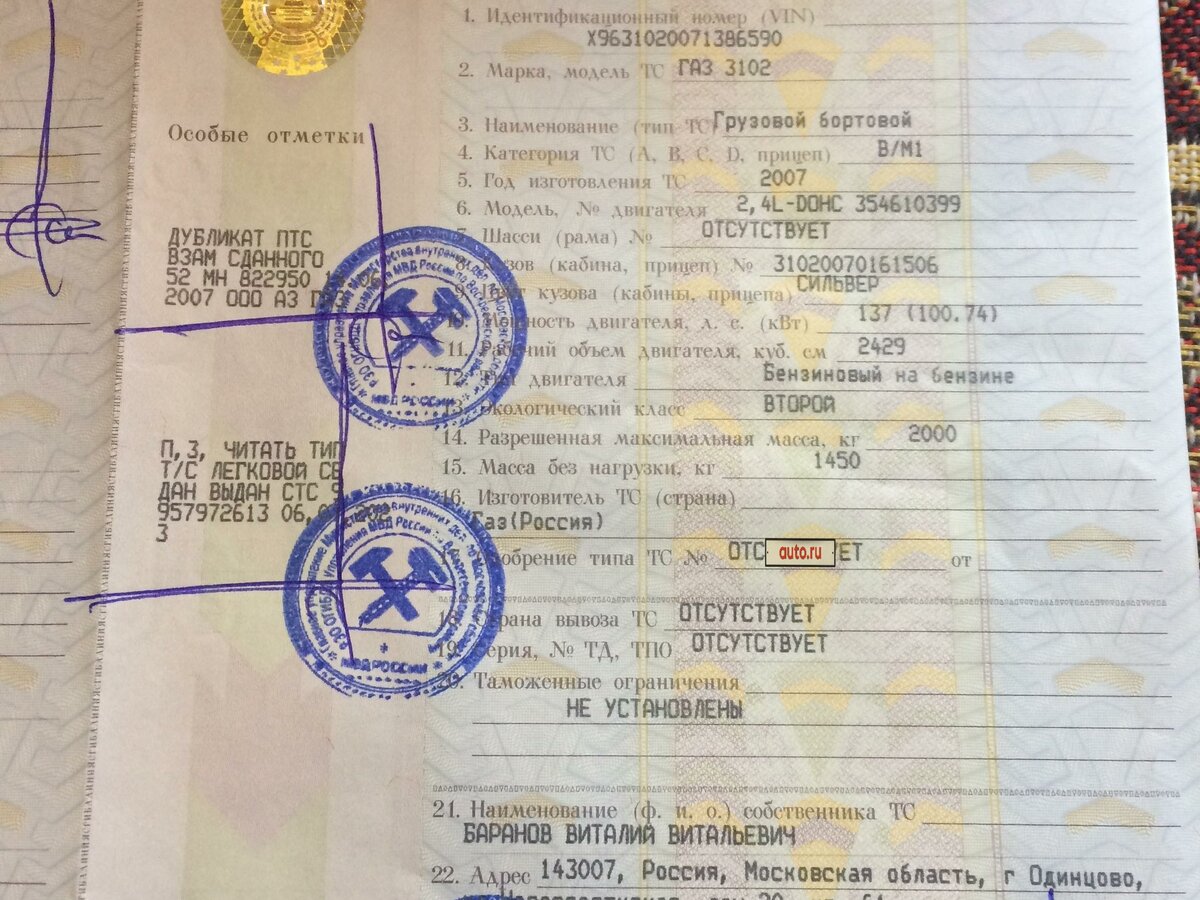 1. Идентификационный номер (VIN)
X9631020071386590
2. Марка, модель ТС ГАЗ 3102
Особые отметки
3. Наименование (тип ТС) Грузовой бортовой
4. Категория ТС (A, B, C, D, прицеп) B/M1
5. Год изготовления ТС 2007
6. Модель, № двигателя 2,4L-DOHC 354610399
7. Шасси (рама) № ОТСУТСТВУЕТ
(кабина, прицеп) № 31020070161506
кузова (кабины, прицепа) СИЛЬВЕР
10. Мощность двигателя, л. с. (кВт) 137 (100.74)
11. Рабочий объем двигателя, куб. см 2429
12. Тип двигателя Бензиновый на бензине
13. Экологический класс ВТОРОЙ
14. Разрешенная максимальная масса, кг 2000
15. Масса без нагрузки, кг 1450
16. Изготовитель ТС (страна)
Газ(Россия)
17. Одобрение типа ТС № ОТС auto.ru ЕТ от
18. Страна вывоза ТС ОТСУТСТВУЕТ
19. Серия, № ТД, ТПО ОТСУТСТВУЕТ
20. Таможенные ограничения
НЕ УСТАНОВЛЕНЫ
21. Наименование (ф. и. о.) собственника ТС
БАРАНОВ ВИТАЛИЙ ВИТАЛЬЕВИЧ
22. Адрес 143007, Россия, Московская область, г Одинцово,
ДУБЛИКАТ ПТС
ВЗАМ СДАННОГО
52 МН 822950
2007 ООО АЗ
П,3, ЧИТАТЬ ТИП
Т/С ЛЕГКОВОЙ СЕ
ДАН ВЫДАН СТС 9
957972613 06,
3
МВД РОССИИ
МВД РОССИИ